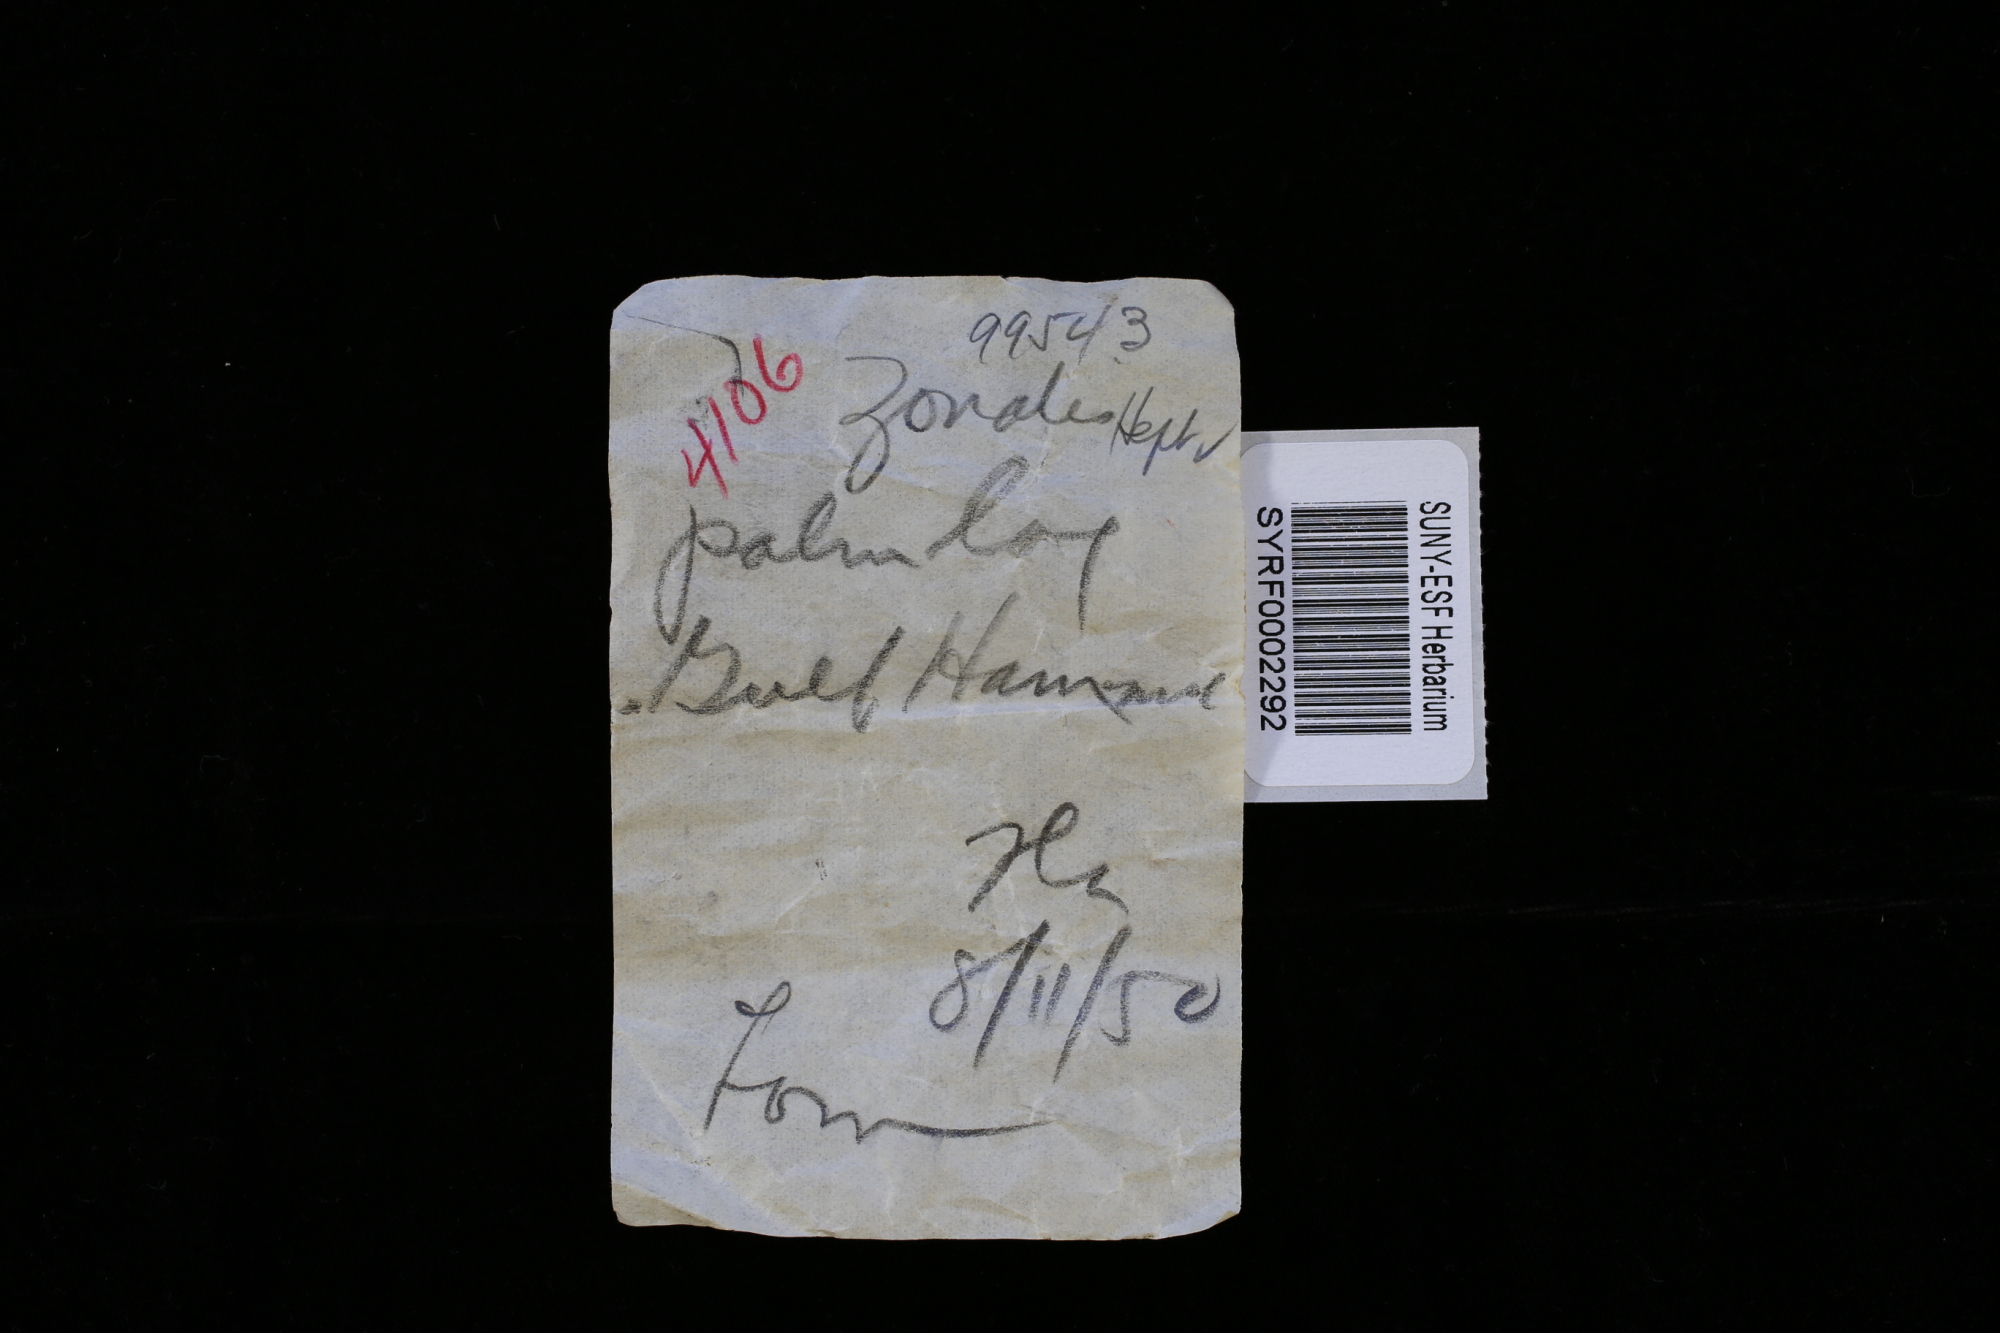 99543
4106
Zonales Hept ✓
palm log
Gulf Hammock
8/11/50
Tom
SUNY-ESF Herbarium
SYRF0002292